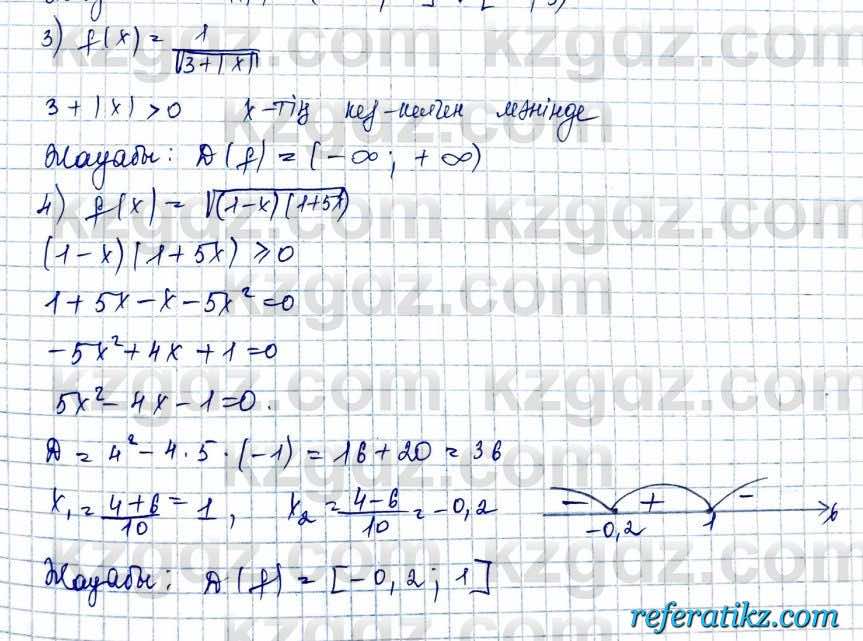 3) f(x) = 1/√(3+|x|)
3 + |x| > 0 x-тің кез-келген мәнінде
Жауабы: D(f) = (-∞; +∞)
4) f(x) = √((1-x)(1+5x))
(1-x)(1+5x) ⩾ 0
1+5x-x-5x²=0
-5x²+4x+1=0
5x²-4x-1=0.
D = 4²-4·5·(-1) = 16+20 = 36
x₁ = (4+6)/10 = 1, x₂ = (4-6)/10 = -0,2
- + -
-0,2 1 x
Жауабы: D(f) = [-0,2; 1]
kzgdz.com
referatikz.com